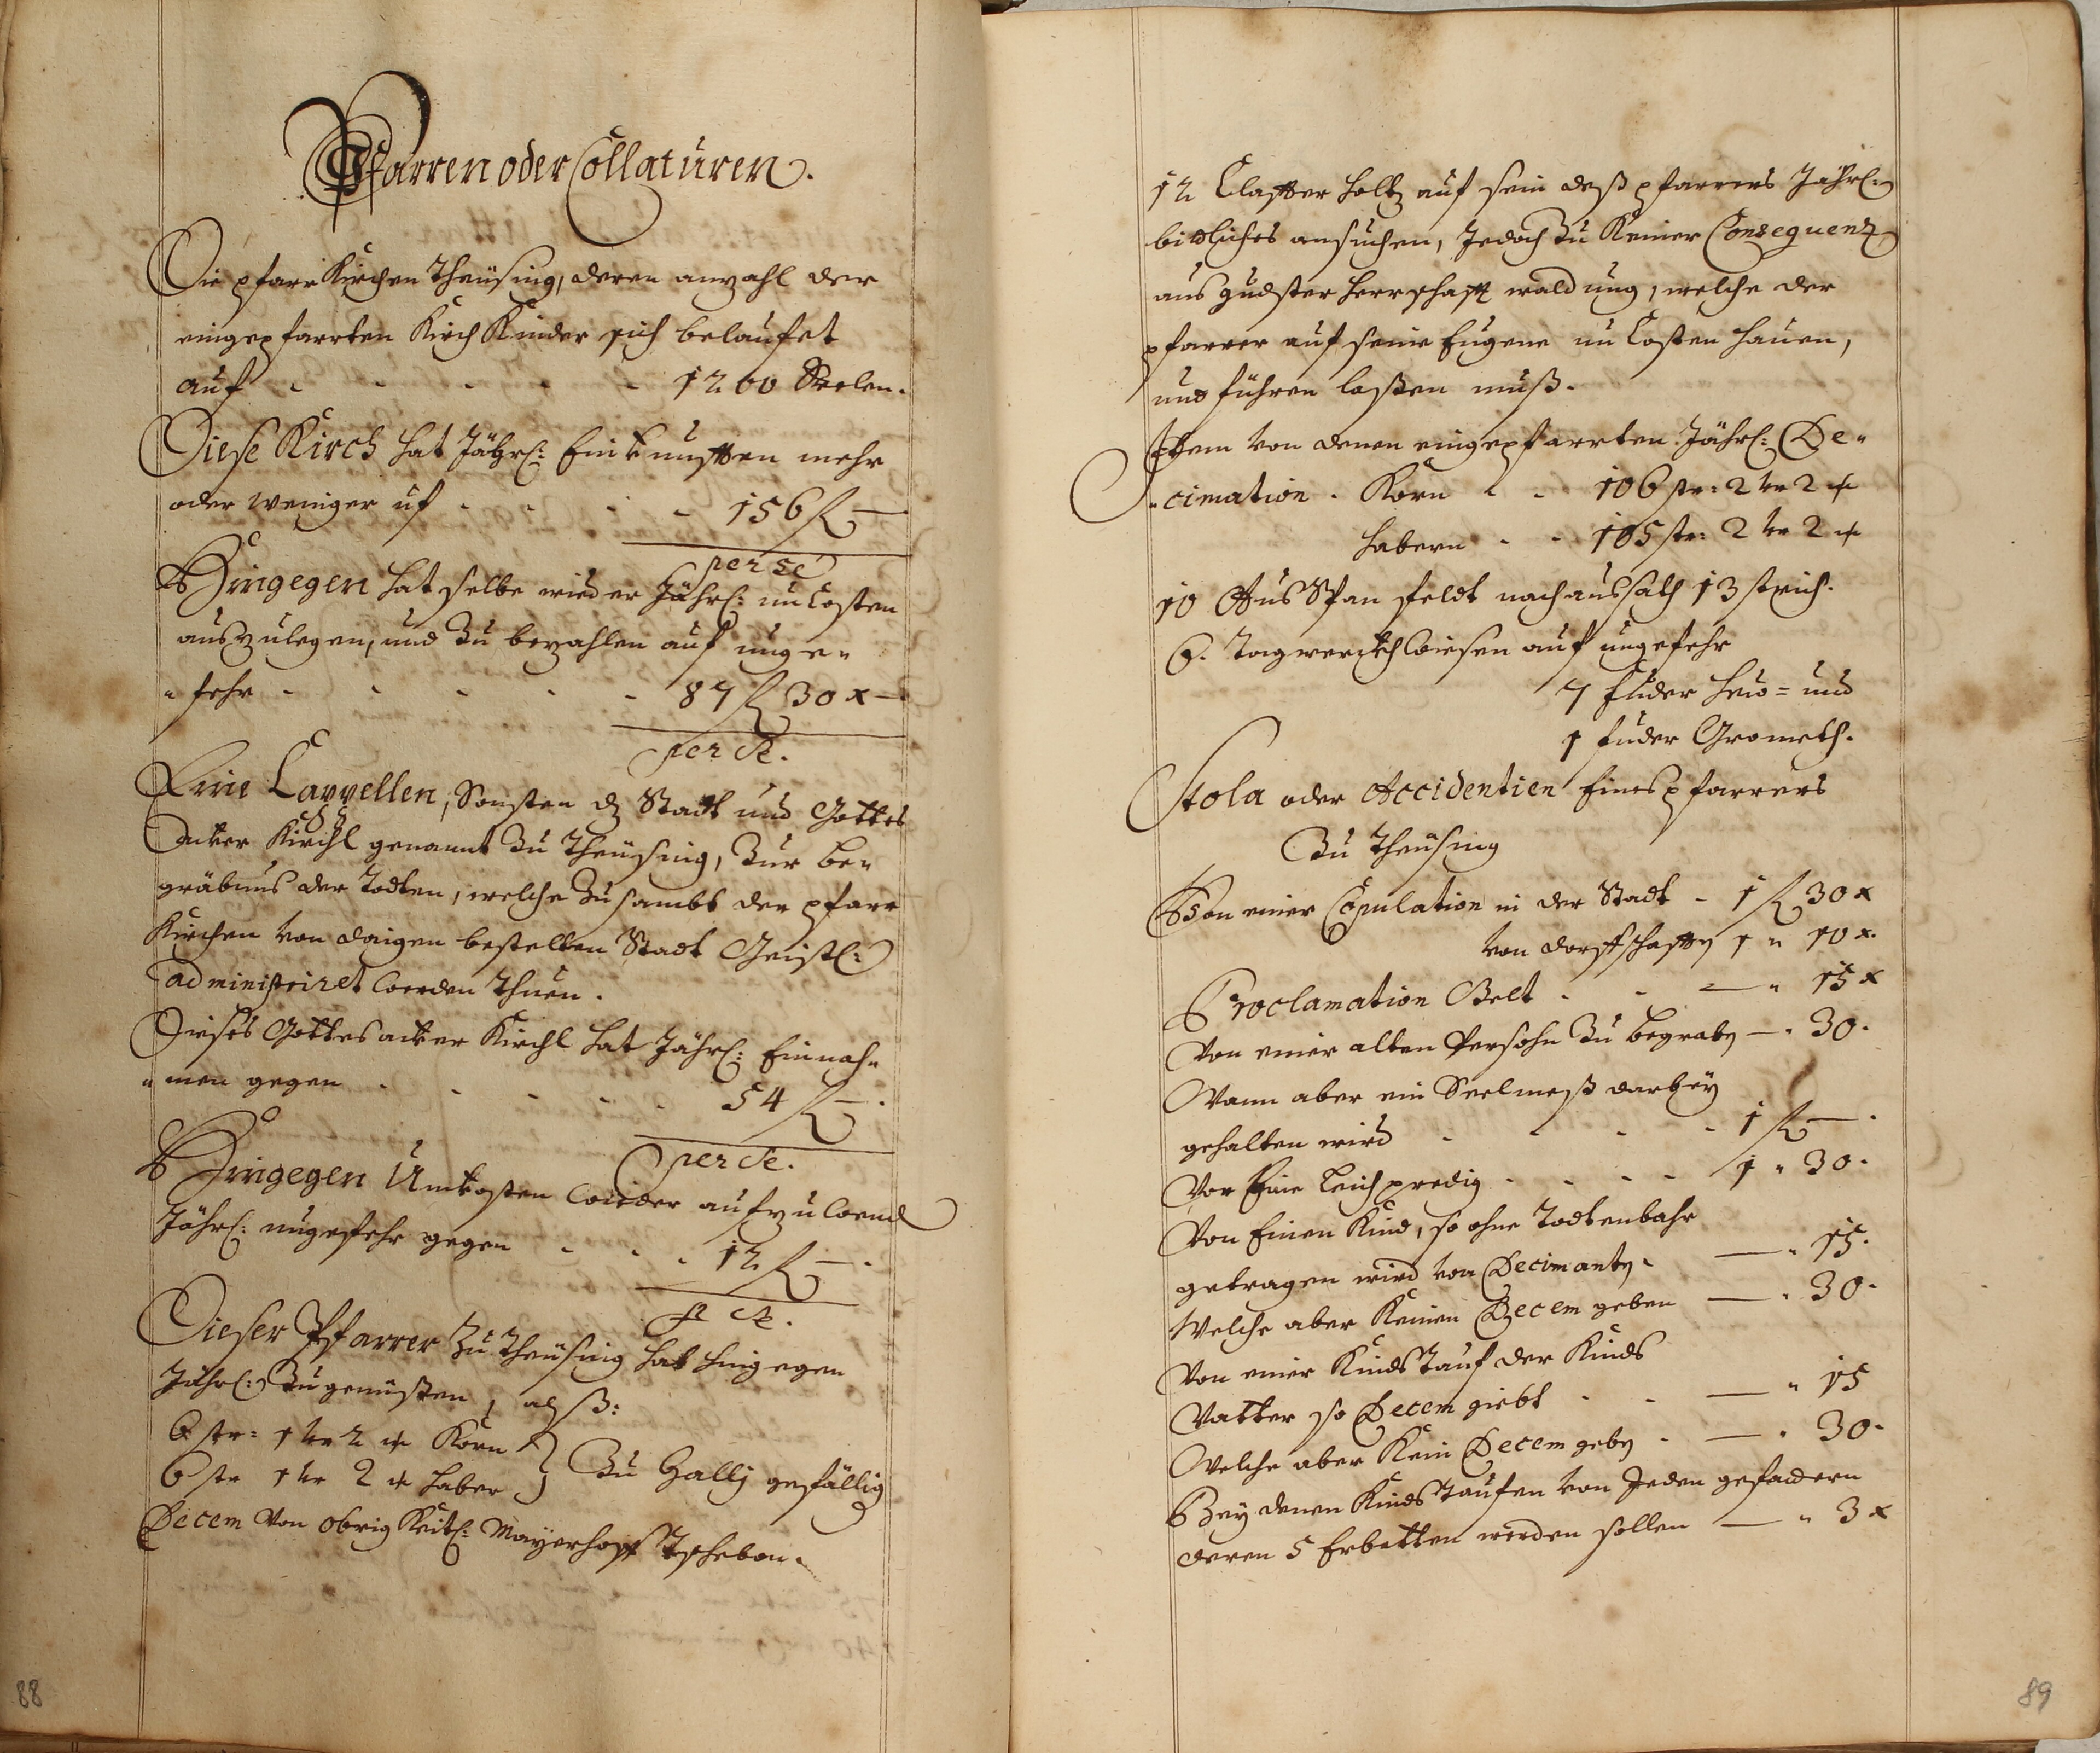 Pfarren oder Collaturen.
Die pfarrKirchen Theüsing, deren anzahl der
eingepfarrten KirchKinder sich belaufet
auf - - - - - 1200 Seelen.
Diese Kirch hat Jährl: Einkunfften mehr
oder weniger uf - - - - 156 fl —
per se
Hingegen hat selbe wieder Jährl: unCosten
auszulegen, und Zu bezahlen auf unge„
„fehr - - - - - 87 fl 30 x —
per se.
Eine Cappellen, Sonsten dz Stadt und Gottes
Acker Kirchl genannt Zu Theüsing, Zur be„
gräbnus der Todten, welche Zusambt der pfarr
Kirchen von daigen bestelten Stadt Geistl:
administriret werden thuen.
Dieses Gottesacker Kirchl hat Jährl: Einnah„
„men gegen - - - - - 54 fl —.
per se.
Hingegen Unkosten wieder aufzuwend
Jährl: ungefehr gegen - - - 12 fl —.
per se.
Dieser Pfarrer Zu Theüsing hat hingegen
Jährl: Zugenüßen, alß:
6 str: 1 vr 2 Korn
6 str 1 vr 2 haber } Zu Gallj gefällig
Decem Von obrigKeitl: Mayerhoff Tschebon.
88
12 Claffter holtz auf sein deß pfarrers Jährl:
bittliches ansuchen, Jedoch Zu Keiner Consequenz
aus gndster herrschafft waldung, welche der
pfarrer auf seine Eugene unCosten hauen,
und führen laßen muß.
Ittem von denen eingepfarrten Jährl: De„
„cimation. Korn - - 106 str: 2 vr 2
habern - - 105 str: 2 vr 2
10 AusSpan feldt nach aussath 13 strich.
6. Tagwerckh wiesen auf ungefehr
7 fuder heu= und
1 fuder Grometh.
Stola oder Accidentien Eines pfarrers
Zu Theüsing
Von einer Copulation in der Stadt - 1 fl 30 x
von dorffschafften 1 „ 10 x.
Proclamation Gelt - - — „ 15 x
Von einer alten Persohn Zu begraben — „ 30.
Wann aber ein Seelmeß darbey
gehalten wird - - - - 1 fl —.
Vor Eine Leichpredig - - - - 1 „ 30.
Von Einen Kind, so ohne Todtenbahr
getragen wird von Decimanten. — „ 15.
Welche aber Keinen Decem geben — „ 30.
Von einer Kinds Tauf der Kinds
Vatter so Decem giebt - - — „ 15
Welche aber Kein Decem geben - — „ 30.
Bey denen Kinds Taufen von Jeden gefattern
deren 5 Erbetten werden sollen — „ 3 x
89